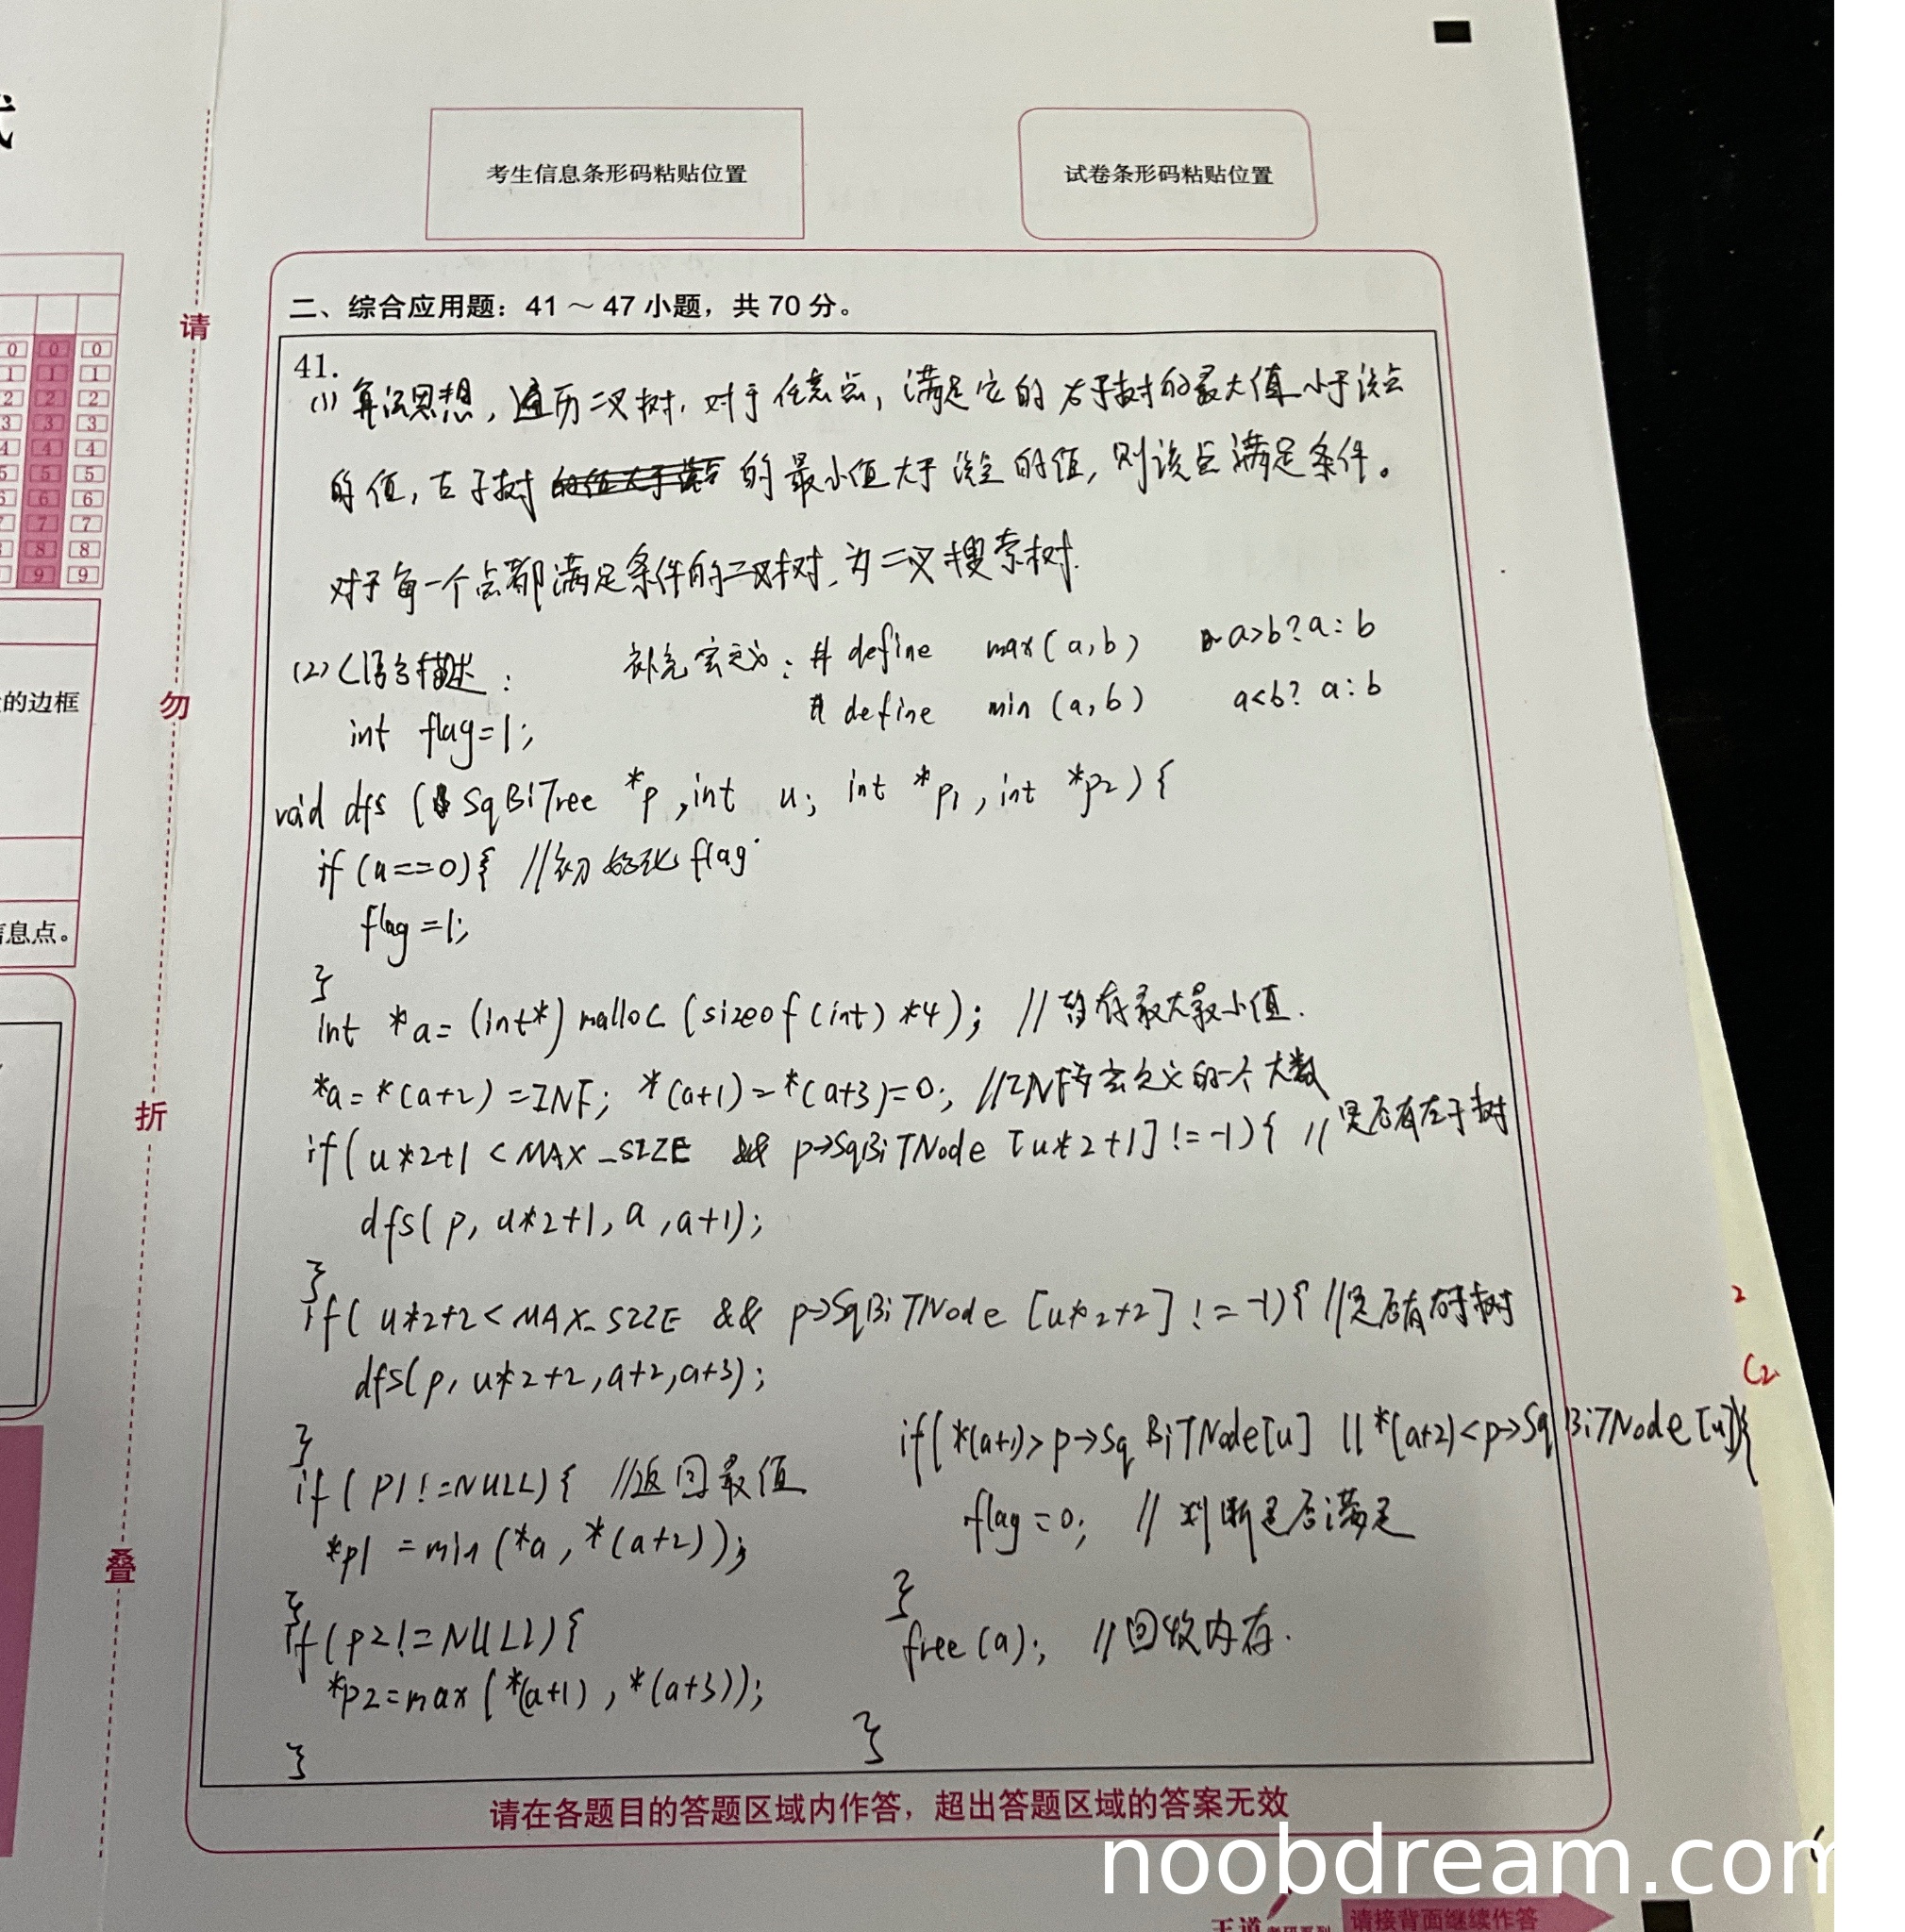 式
考生信息条形码粘贴位置
试卷条形码粘贴位置
请
勿
折
叠
的边框
信息点。
二、综合应用题：41～47 小题，共 70 分。
41.
(1) 算法思想，遍历二叉树，对于任意点，满足它的左子树的最大值小于该点
的值，右子树的最小值大于该点的值，则该点满足条件。
对于每一个点都满足条件的二叉树，为二叉搜索树.
(2) C语言描述：
补充宏定义： # define max(a,b) a>b?a:b
# define min (a,b) a<b? a:b
int flag=1;
void dfs ( SqBiTree *p ,int u; int *p1 , int *p2 ) {
if (u==0){ //初始化 flag
flag =1;
}
int *a= (int*) malloc (sizeof(int) *4); // 暂存最大最小值.
*a= *(a+2) =INF; *(a+1)=*(a+3)=0; //INF为宏定义的一个大数
if( u*2+1 < MAX_SIZE && p->SqBiTNode [u*2+1] !=-1){ //是否有左子树
dfs( p, u*2+1, a ,a+1);
}
if( u*2+2 < MAX_SIZE && p->SqBiTNode [u*2+2] != -1){ //是否有右子树
dfs(p, u*2+2,a+2,a+3);
}
if ( p1!=NULL) { //返回最值
*p1 =min (*a, *(a+2));
}
if (p2!=NULL){
*p2=max (*(a+1) , *(a+3));
}
if( *(a+1)> p->SqBiTNode[u] || *(a+2)<p->SqBiTNode[u]){
flag=0; // 判断是否满足
}
free (a); //回收内存.
}
2
(2
请在各题目的答题区域内作答，超出答题区域的答案无效
noobdream.com
王道考研系列
请接背面继续作答